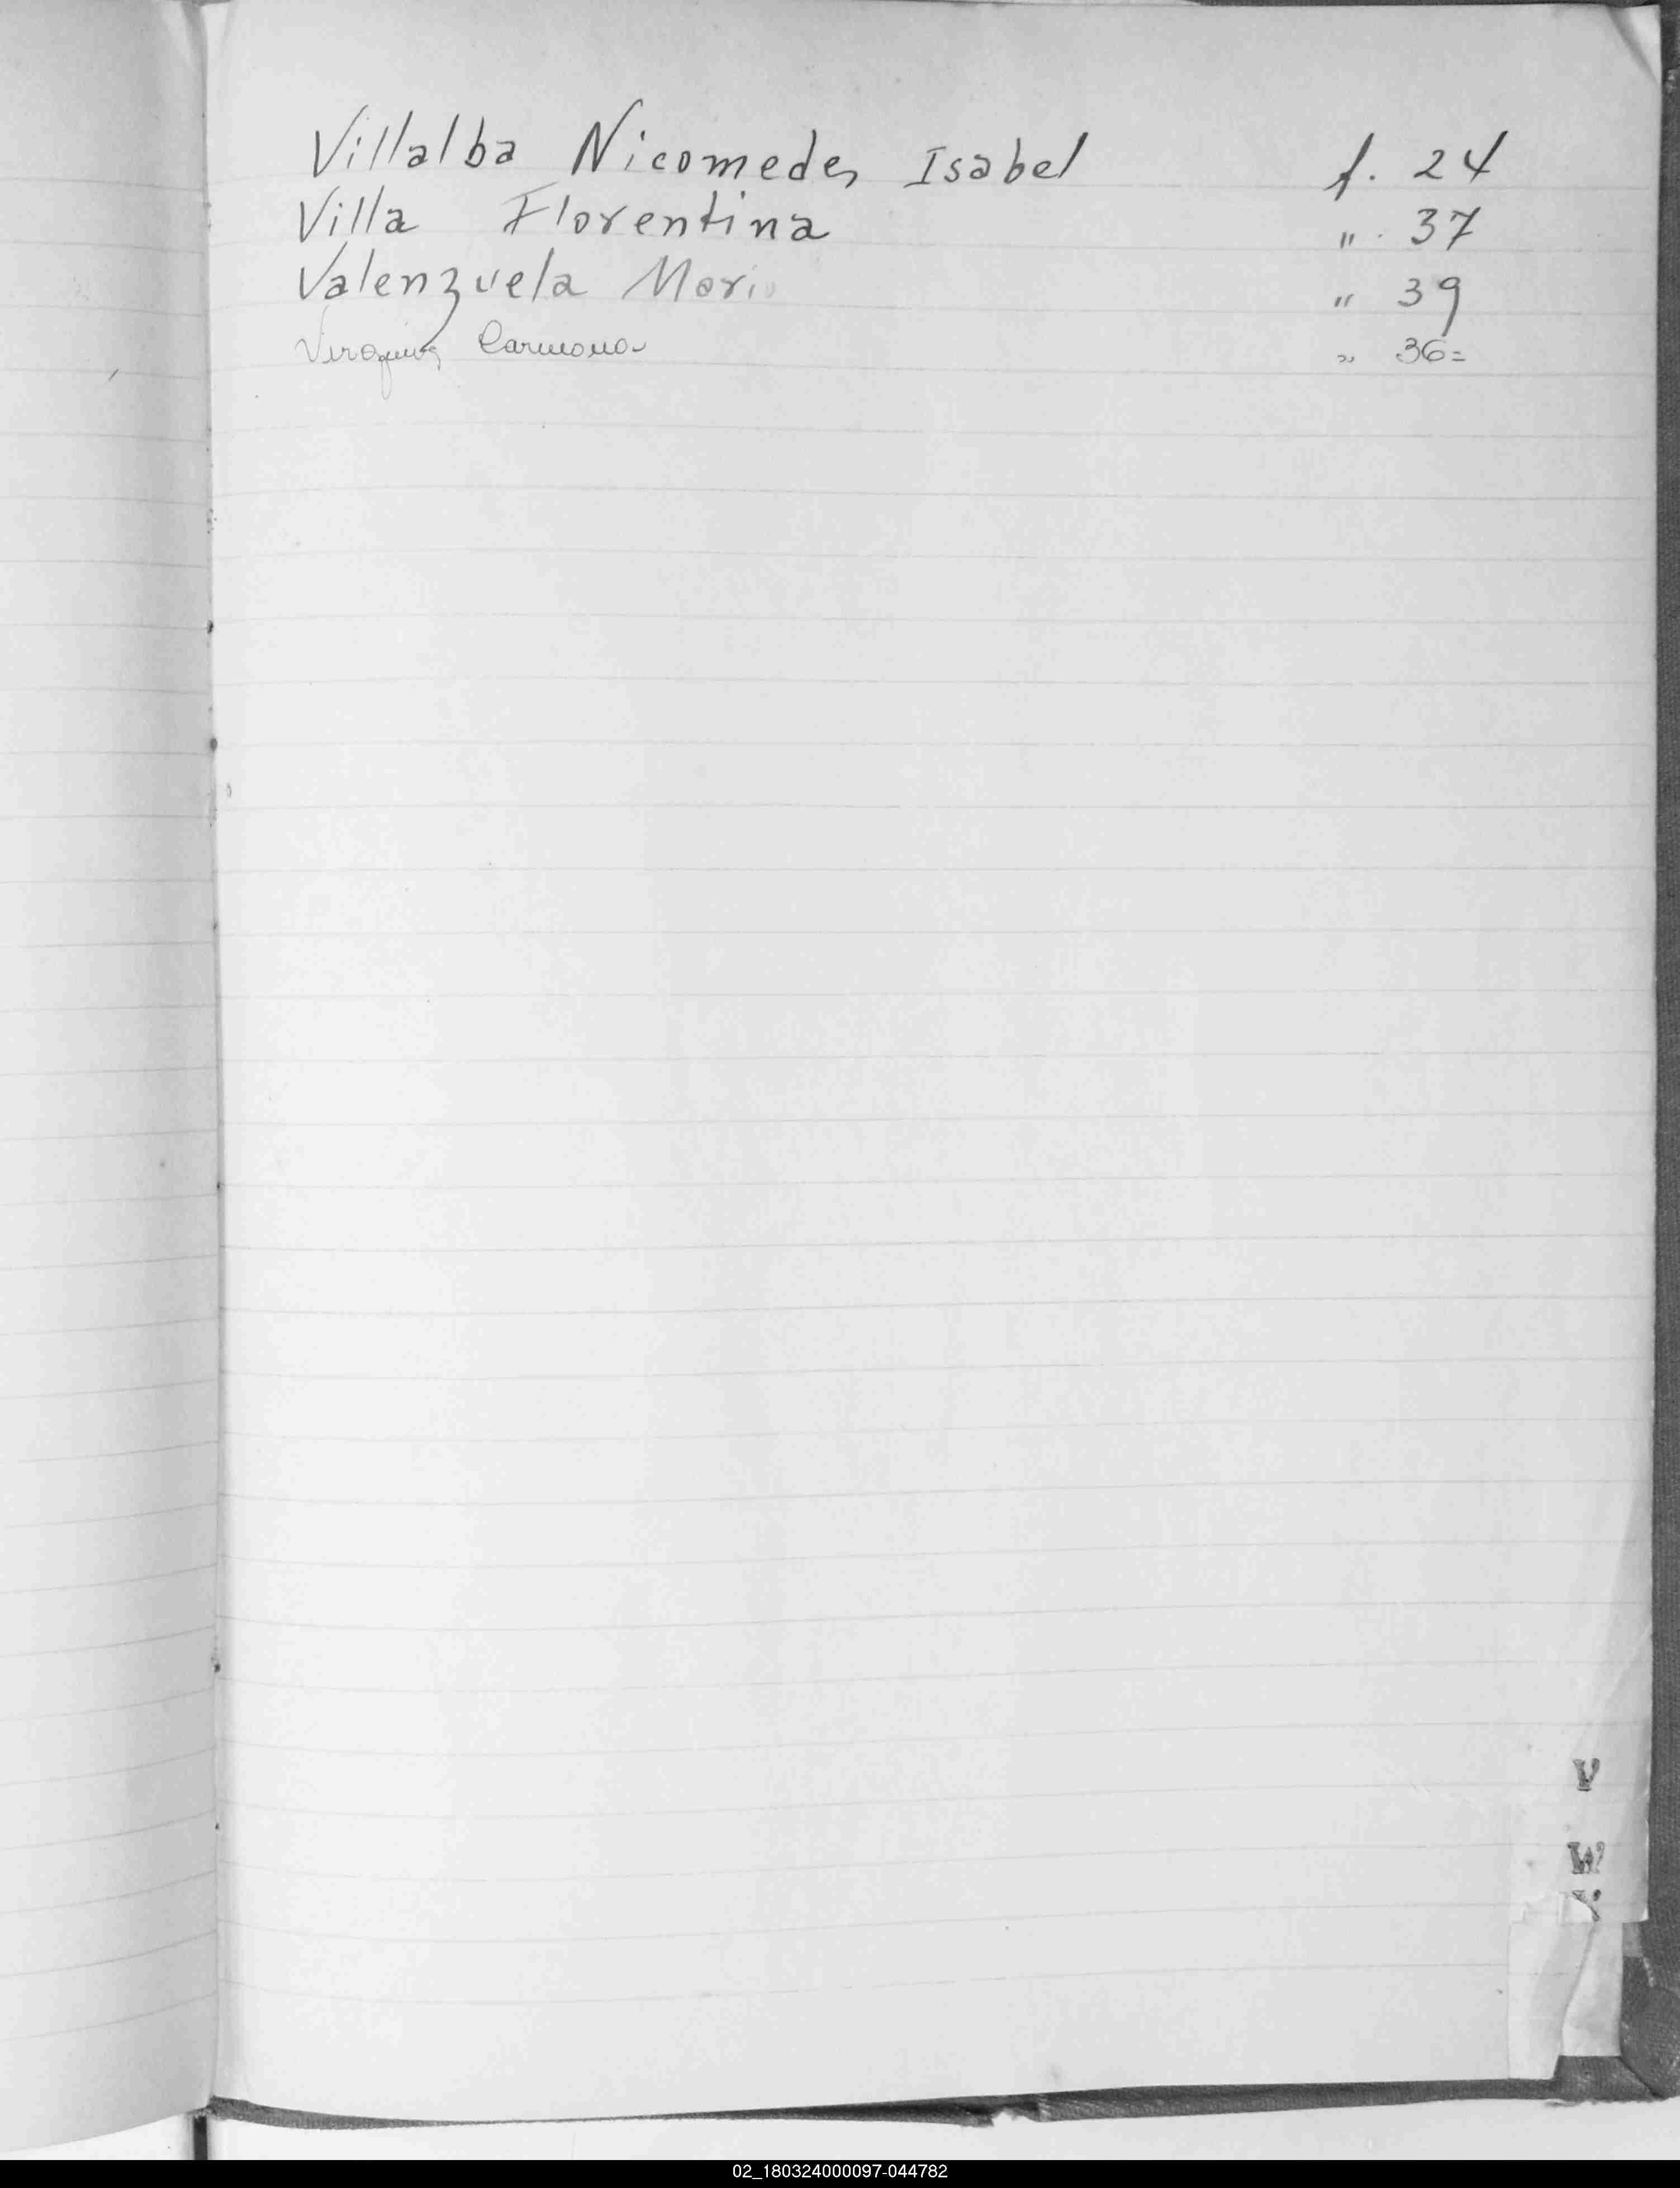 Villalba Nicomedes Isabel f. 24
Villa Florentina " . 37
Valenzuela Mario " 39
Carmona " 36=
V
W
02_180324000097-044782